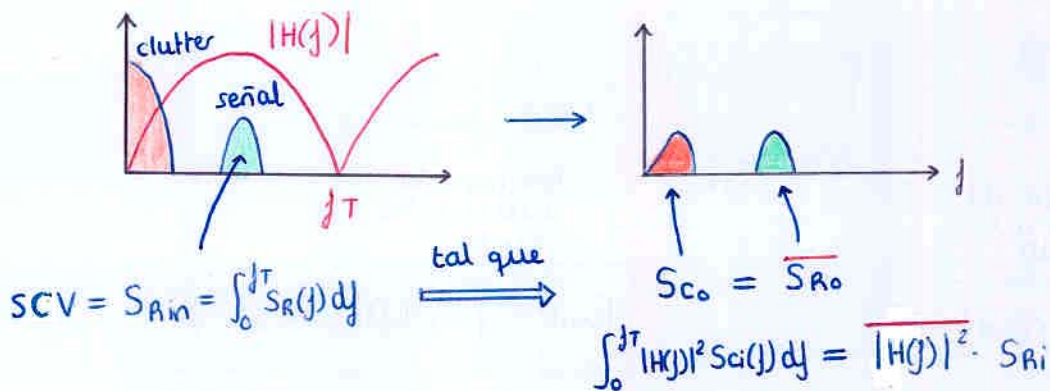 clutter
|H(f)|
señal
fT
f
SCV = S_Rin = ∫₀^fT S_R(f) df
tal que
S_Co = \overline{S_Ro}
∫₀^fT |H(f)|² Sci(f) df = \overline{|H(f)|²} · S_Ri